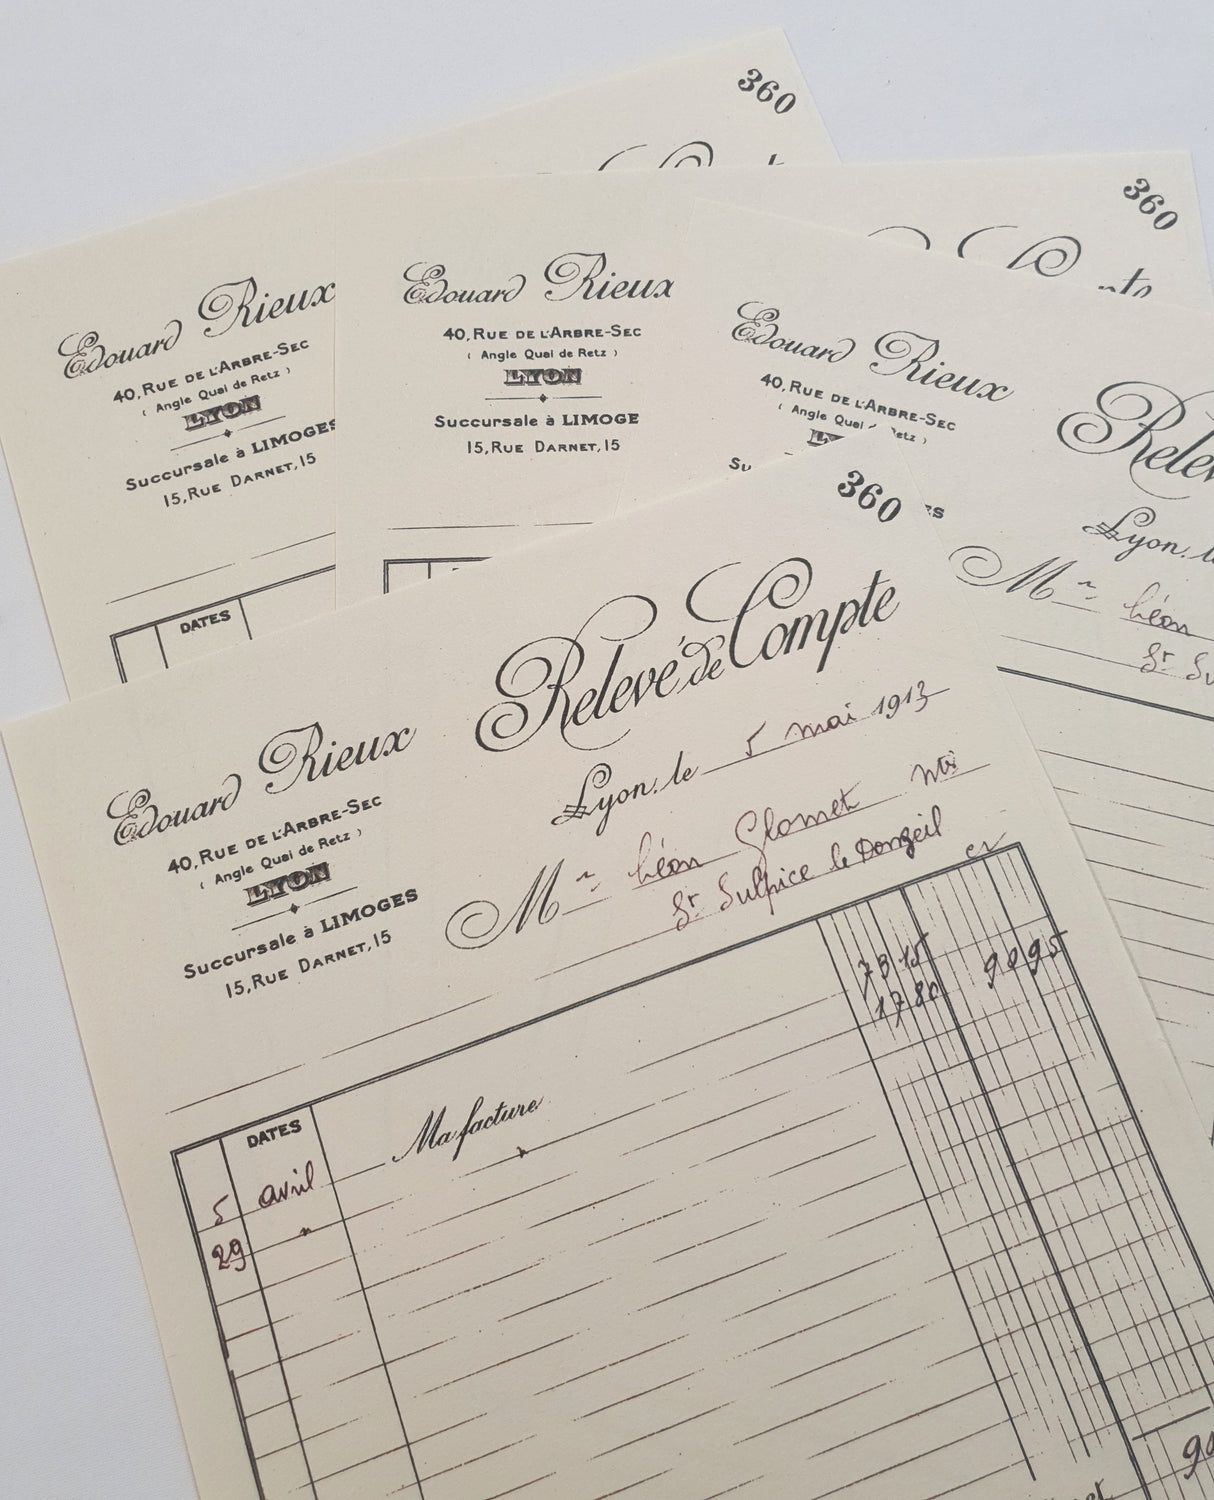 360
Edouard Rieux
40, RUE DE L'ARBRE-SEC
( Angle Quai de Retz )
LYON
Succursale à LIMOGES
15, RUE DARNET, 15
DATES
360
Edouard Rieux
40, RUE DE L'ARBRE-SEC
( Angle Quai de Retz )
LYON
Succursale à LIMOGE
15, RUE DARNET, 15
Edouard Rieux
40, RUE DE L'ARBRE-SEC
( Angle Quai etz )
LY
Su ES
Relev
Lyon, l
Mr Léon
St Su
360
Relevé de Compte
Edouard Rieux
40, RUE DE L'ARBRE-SEC
( Angle Quai de Retz )
LYON
Succursale à LIMOGES
15, RUE DARNET, 15
Lyon, le 5 mai 1913
Mr Léon Glomet
St Sulpice le Donzeil
DATES
5 avril Ma facture 73 15 90 95
29 " " 17 80
90